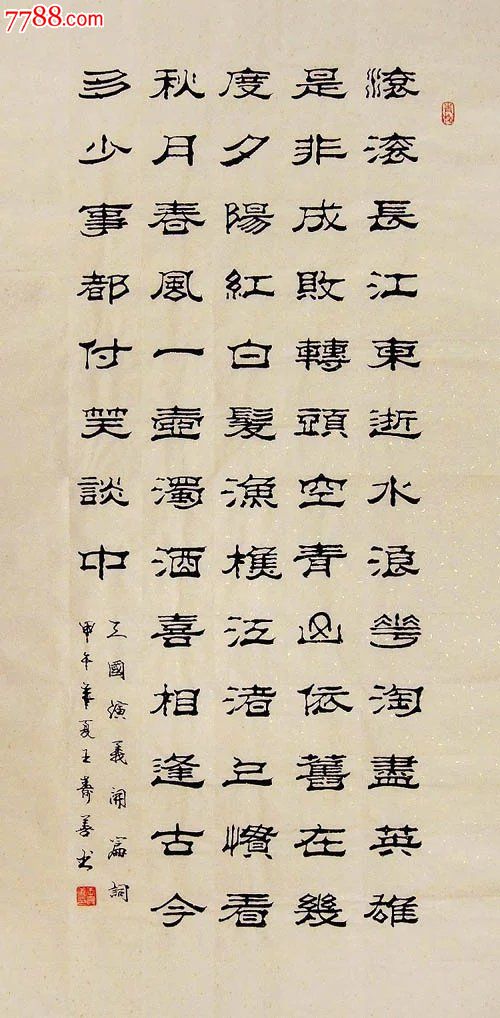 7788.com
滚滚長江東逝水浪花淘盡英雄
是非成敗轉頭空青山依舊在幾
度夕陽紅白髮漁樵江渚上慣看
秋月春風一壺濁酒喜相逢古今
多少事都付笑談中
三國演義開篇詞
甲午年夏王壽善书